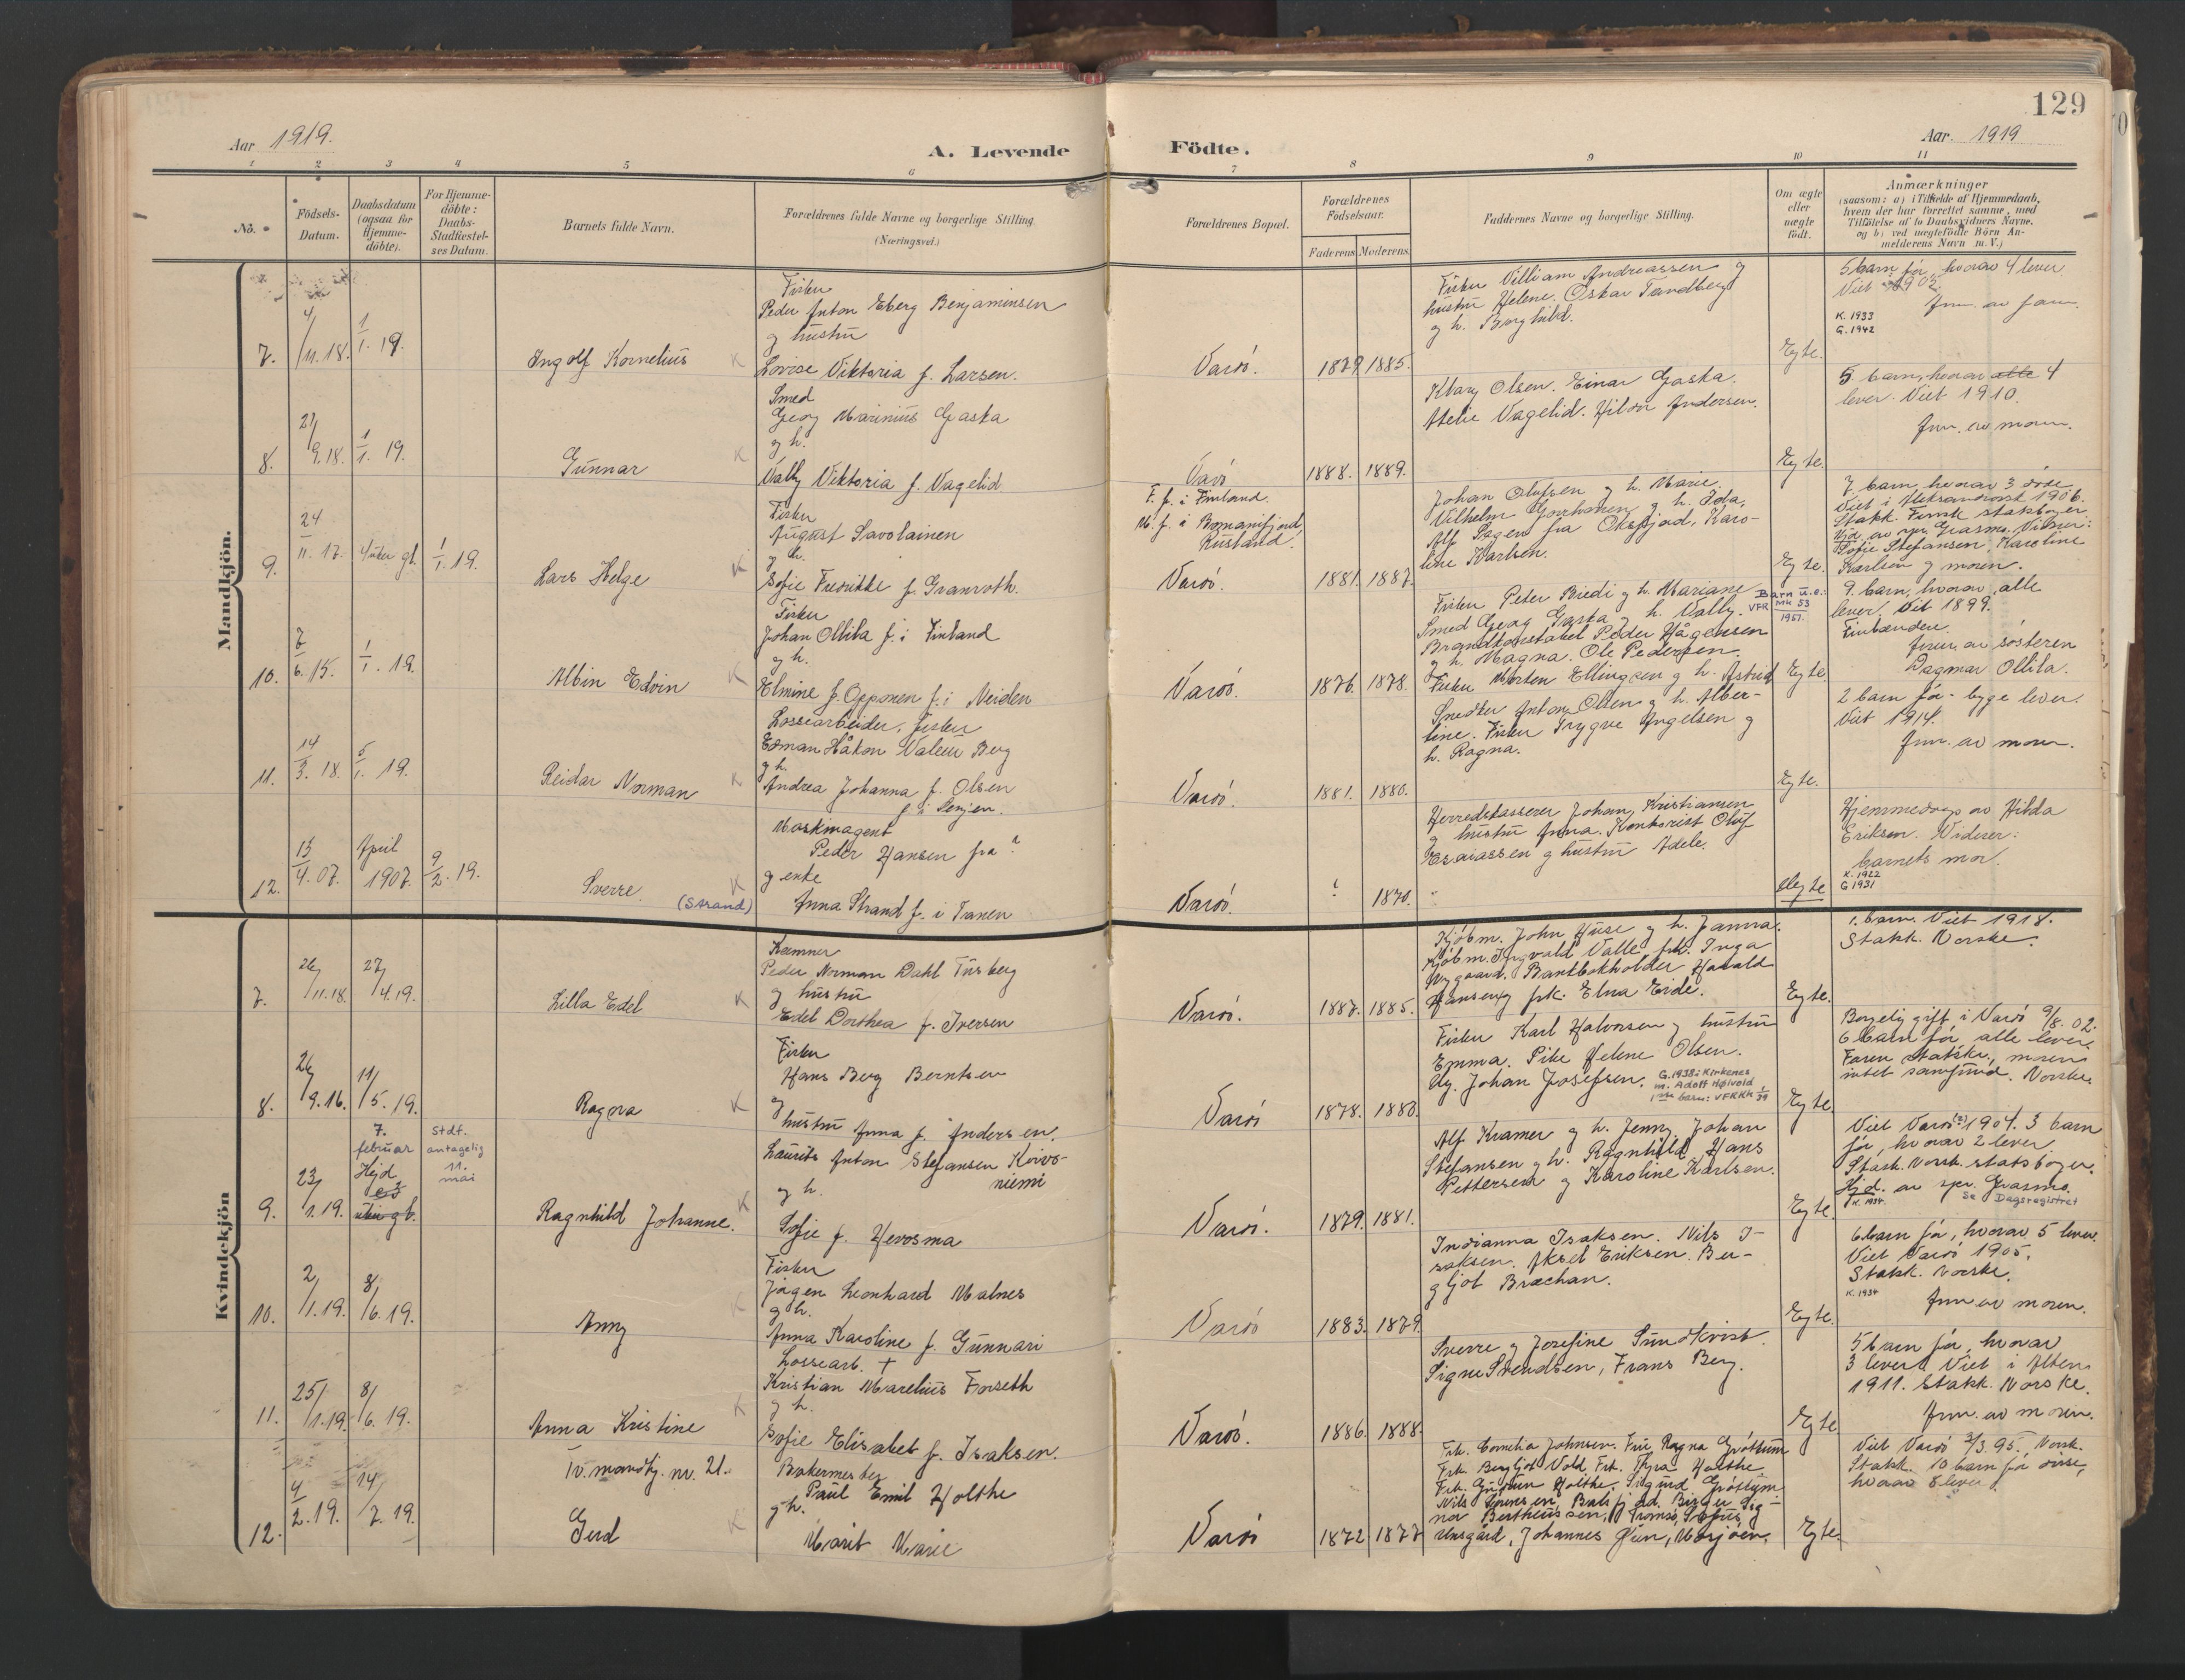 129
Aar 1919.
A. Levende
Födte.
Aar. 1919
1 2 3 4 5 6 7 8 9 10 11
No.
Födsels-
Datum.
Daabsdatum
(ogsaa for
Hjemme-
döbte).
For Hjemme-
döbte:
Daabs-
Stadfæstel-
ses Datum.
Barnets fulde Navn.
Forældrenes fulde Navne og borgerlige Stilling
(Næringsvei.)
Forældrenes Bopæl.
Forældrenes
Födselsaar.
Faderens
Moderens
Faddernes Navne og borgerlige Stilling.
Om ægte
eller
uægte
födt.
Anmærkninger
(saasom: a) i Tilfælde af Hjemmedaab,
hvem der har forrettet samme, med
Tilföielse af to Daabsvidners Navne,
og b) ved uægtefödte Börn An-
melderens Navn m. V.)
Mandkjön.
7.
4/11.18.
1/1.19.
Ingolf Kornelius
K
Fisker
Peder Anton Eberg Benjaminsen
g hustru
Lovise Viktoria f. Larsen.
Vardö.
1879
1885.
Fisker Villiam Andreassen g
hustru Helene. Oskar Tandberg
g h. Borghild.
Egte.
5 barn för, hvorav 4 lever
Viet 1902
K. 1933
G. 1942
8.
21/9.18.
1/1. 19.
Gunnar
K
Smed
Georg Marinius Gaska
g h.
Vally Viktoria f. Vagelid
Vardö
1888.
1889.
Klary Olsen. Einar Gaska.
Vagelid. Andersen.
Egte.
5 barn, hvorav alle 4
lever. Viet 1910.
av moren.
9.
24/11. 17.
1/1. 19.
Lars Helge
K
Fisker
August Savolainen
g h.
Sofie Fredrikke f. Granroth.
F. f. i Finland.
Rusland.
Vardö.
1881.
1887.
Johan Olufsen g h. Marie.
Vilhelm g h. Ida,
Karo-
line Karlsen.
Egte.
7 barn, hvorav 3 döde
Viet i Aleksandrovsk 1906.
Stakk. Finsk statsborger
Sofie Stefansen. Karoline
Karlsen g moren.
10.
7/6. 15.
1/1. 19.
Albin Edvin
K
Fisker
Johan Ollila f. i Finland
g h.
Elmine f. Opponen f. i Neiden
Vardö.
1876.
1878.
Fisker Peter Biedi g h. Mariane
Smed Georg Gaska g h. Vally.
Brandkonstabel Peder Hågensen
g h. Magna. Ole Pedersen.
Barn u.e.:
VFR MK 53
1957.
Egte
9. barn, hvorav alle
lever. Vit 1899.
Finlænder.
av søsteren
Dagmar Ollila.
11.
14/3. 18.
5/1. 19.
Reidar Norman
K
Lossearbeider, fisker
Edman Håkon Berg
g h.
Andrea Johanna f. Olsen
f. i Senjen.
Vardö.
1881.
1880.
Fisker Morten Ellingsen g h. Astrid
Snedker Anton Olsen g h. Alber-
tine. Fisker Trygve Angelsen g
h. Ragna.
Egte.
2 barn för - begge lever.
Viet 1914.
av moren.
12.
15/4. 07.
April
1907.
9/2. 19.
Sverre.
(Strand)
K
Maskinagent
Peder Hansen fra ?
g enke
Anna Strand f. i Tranen
Vardö.
?
1870.
Herredskasserer Johan Kristiansen
g hustru Anna. Kontorist Oluf
Esaiassen g hustru Adele.
Uegte
Hjemmedöpt av Hilda
Eriksen. Vidner:
barnets mor.
K. 1922
G 1931
Kvindekjön
7.
26/11.18.
27/4.19.
Lilla Edel
K
Kæmner
Peder Norman Dahl Tusberg
g hustru
Edel Dorthea f. Iversen
Vardö.
1887.
1885.
Kjöbm. John Huse g h. Janna.
Kjöbm. Ingvald Valle frk. Inga
Nygaard. Bankbokholder Harald
Hansen g frk. Elna Eide.
Egte.
1. barn. Viet 1918.
Stakk. Norske.
8.
26/9.16.
11/5.19.
Ragna
K
Fisker
Hans Berg Berntsen
g
hustru Anna f. Andersen.
Vardö
1878.
1880.
Fisker Karl Halvorsen g hustru
Emma. Pike Helene Olsen.
Ug. Johan Josefsen.
G. 1938 i Kirkenes
m. Adolf Hølvold
Egte
Borgelig gift i Vardö 9/8. 02.
6 barn för, alle lever.
Faren statskr., moren
intet samfund. Norske.
9.
23/1.19.
7.
februar
Hjd
Stdf.
antagelig
11.
mai
Ragnhild Johanne.
K
Laurits Anton Stefansen Koivo-
niemi
g h.
Sofie f. Hevosma
Vardö.
1879.
1881.
Alf Kramer g h. Jenny. Johan
Stefansen g h. Ragnhild Hans
Pettersen g Karoline Karlsen.
Egte.
Viet Vardö (?) 1904. 3 barn
för, hvorav 2 lever
Stakk. norsk statsborger.
Hjd. av
K. 1934.
Se Dagsregistret
10.
2/1.19.
8/6.19.
Anny
K
Fisker
Jörgen Leonhard Malnes
g h.
Anna Karoline f. Gunnari
Vardö
1883.
1879.
Indianna Isaksen. Nils I-
saksen. Aksel Eriksen. Ber-
gljot Brækhan.
Egte.
6 barn för, hvorav 5 lever.
Viet Vardö 1905.
Stakk. norske.
K. 1934
av moren.
11.
25/1.19.
8/6. 19.
Anna Kristine
K
Lossearb. +
Kristian Marelius Forseth
g h.
Sofie Elisabet f. Isaksen.
Vardö.
1886.
1888.
Sverre g Josefine Sundkvist.
Signe Svendsen, Frans Berg.
Egte
5 barn för, hvorav
3 lever. Viet i Alten
1911. Stakk. Norske.
av moren.
12.
4/2.19.
14/7. 19.
Tv. mandkj. nr. 21.
Gerd
K
Bakermester
Paul Emil Holthe
g h.
Marit Marie
Vardö
1872
1877
Frk. Cornelia Johnsen. Fru Ragna Gröttum
Frk. Bergljot Vold. Frk. Thyra Holthe
Frk. Gudrun Holthe. Sigurd Gröttum
Birger Sig-
Johannes Mosjöen.
Egte.
Viet Vardö 3/3. 95. Norsk.
Stakk. 10 barn för disse,
hvorav 8 lever